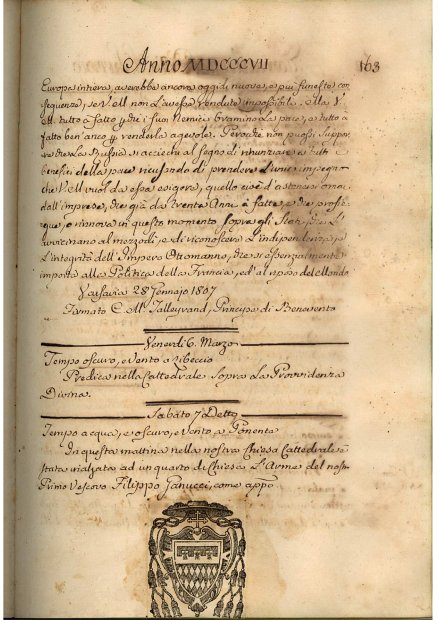 Anno MDCCCVII 163
Europa intiera, averebbe ancora oggidì nuove, e più funeste con
seguenze, se V. M. non l'avesse renduto impossibile, e la V.
M. tutto à fatto, e che i suoi Nemici bramino la pace, e tutto à
fatto ben'anco p. renderla agevole. Però che non puossi suppor
re che la Russia si accieche al segno di rinunziare a tutti i
benefizi della pace ricusando di prendere l'unico impegno
che V. M. vuol da essa esigere, quello cioè d'astenersi omai
dall'imprese, che già da trenta Anni à fatte, e che prosie
gue, o rinnova in questo momento sopra gli Stati che l'av
vicinano al mezzodì, e di riconoscere l'indipendenza, e
l'integrità dell'Impero Ottomanno, che sì essenzialmente
importa alla Politica della Francia, ed al riposo del Mondo
Varsavia 28 Gennajo 1807
Firmato C. M. Talleyrand, Principe di Benevento
Venerdì 6. Marzo
Tempo oscuro, e vento a libeccio
Predica nella Cattedrale sopra la Providenza
Divina.
Sabato 7 Detto
Tempo a acqua, e oscuro, e vento a Ponente
In questa mattina nella nostra Chiesa Cattedrale è
stata rialzata ad un quarto di Chiesa l'Arme del nostro
Primo Vescovo Filippo Ganucci, come appo